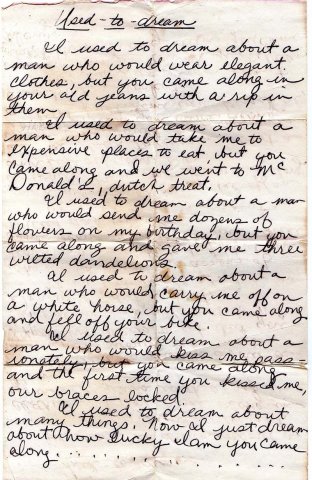 Used-to-dream
I used to dream about a
man who would wear elegant
clothes, but you came along in
your old jeans with a rip in
them
I used to dream about a
man who would take me to
expensive places to eat, but you
came along and we went to Mc
Donald's, dutch treat.
I used to dream about a man
who would send me dozens of
flowers on my birthday, but you
came along and gave me three
wilted dandelions
I used to dream about a
man who would carry me off on
a white horse, but you came along
and fell off your bike.
I used to dream about a
man who would kiss me pass=
ionately, but you came along
and the first time you kissed me,
our braces locked.
I used to dream about
many things. Now I just dream
about how lucky I am you came
along.............